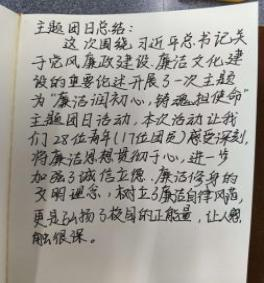 主题团日总结：
这次围绕习近平总书记关
于党风廉政建设、廉洁文化建
设的重要论述开展了一次主题
为“廉洁润初心，铸魂担使命”
主题团日活动，本次活动让我
们28位青年(17位团员)感受深刻，
将廉洁思想贯彻于心，进一步
加强了诚信立德、廉洁修身的
文明理念，树立了廉洁自律风范，
更是弘扬了校园的正能量，让人感
触很深。